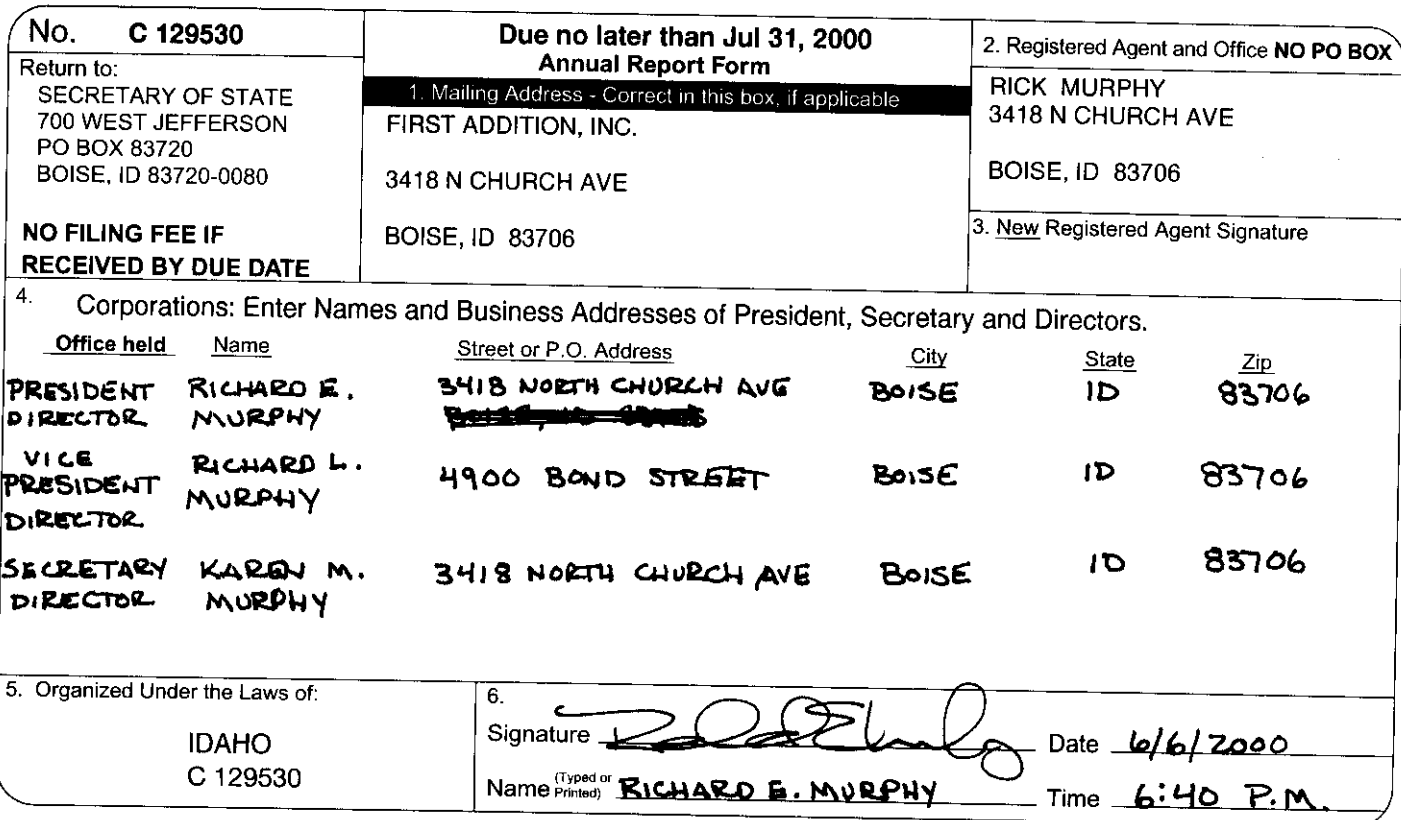 No. C 129530
Return to:
SECRETARY OF STATE
700 WEST JEFFERSON
PO BOX 83720
BOISE, ID 83720-0080
NO FILING FEE IF
RECEIVED BY DUE DATE
Due no later than Jul 31, 2000
Annual Report Form
1. Mailing Address - Correct in this box, if applicable
FIRST ADDITION, INC.
3418 N CHURCH AVE
BOISE, ID 83706
2. Registered Agent and Office NO PO BOX
RICK MURPHY
3418 N CHURCH AVE
BOISE, ID 83706
3. New Registered Agent Signature
4. Corporations: Enter Names and Business Addresses of President, Secretary and Directors.
Office held Name Street or P.O. Address City State Zip
PRESIDENT RICHARD E. 3418 NORTH CHURCH AVE BOISE ID 83706
DIRECTOR MURPHY
VICE RICHARD L. 4900 BOND STREET BOISE ID 83706
PRESIDENT MURPHY
DIRECTOR
SECRETARY KAREN M. 3418 NORTH CHURCH AVE BOISE ID 83706
DIRECTOR MURPHY
5. Organized Under the Laws of:
IDAHO
C 129530
6.
Signature Date 6/6/2000
Name (Typed or Printed) RICHARD E. MURPHY Time 6:40 P.M.